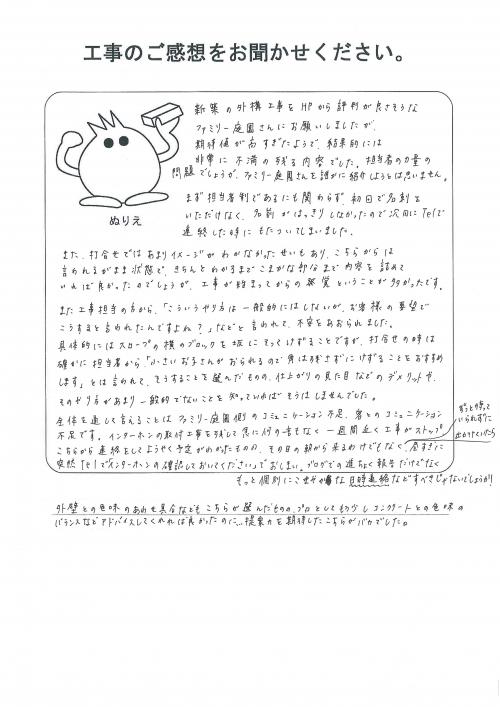 工事のご感想をお聞かせください。
ぬりえ
新築の外構工事をHPから評判が良さそうな
ファミリー庭園さんにお願いしましたが、
期待値が高すぎたようで、結果的には
非常に不満の残る内容でした。担当者の力量の
問題でしょうが、ファミリー庭園さんを誰かに紹介しようとは思いません。
まず担当者制であるにも関わらず、初回で名刺を
いただけなく、名前がはっきりしなかったので次回にTelで
連絡した時にもたついてしまいました。
また、打合せではあまりイメージがわかなかったせいもあり、こちらからは
言われるがまま状態で、きちんとわかるまでこまかな部分まで内容を詰めて
いれば良かったのでしょうが、工事が始まってからの発覚ということが多かったです。
また工事担当の方から、「こういうやり方は一般的にはしないが、お客様の要望で
こうすると言われたんですよね?」などと言われて、不安をあおられました。
具体的にはスロープの横のブロックを坂にそってけずることですが、打合せの時は
確かに担当者から「小さいお子さんがおられるので角は残さずにけずることをおすすめ
します」とは言われて、そうすることを選んだものの、仕上がりの見た目などのデメリットや、
そのやり方があまり一般的でないことを知っていればそうはしませんでした。
全体を通して言えることはファミリー庭園側のコミュニケーション不足、客とのコミュニケーション
不足です。インターホンの取付工事を残して急に何の音もなく一週間近く工事がストップ。
こちらから連絡をしてようやく予定がわかったものの、その日の朝から来るわけでもなく、昼すぎに
ずっと待って
いられずに
出かけていたら
突然Telで「インターホンの確認しておいてください」でおしまい。ブログでの進ちょく報告だけでなく
もっと個別にこまやかな日時連絡などすべきじゃないでしょうか!
外壁との色味のあわせ具合などもこちらが選んだものの、プロとしてもう少しコンクリートとの色味の
バランスなどアドバイスしてくれれば良かったのに…提案力を期待したこちらがバカでした。